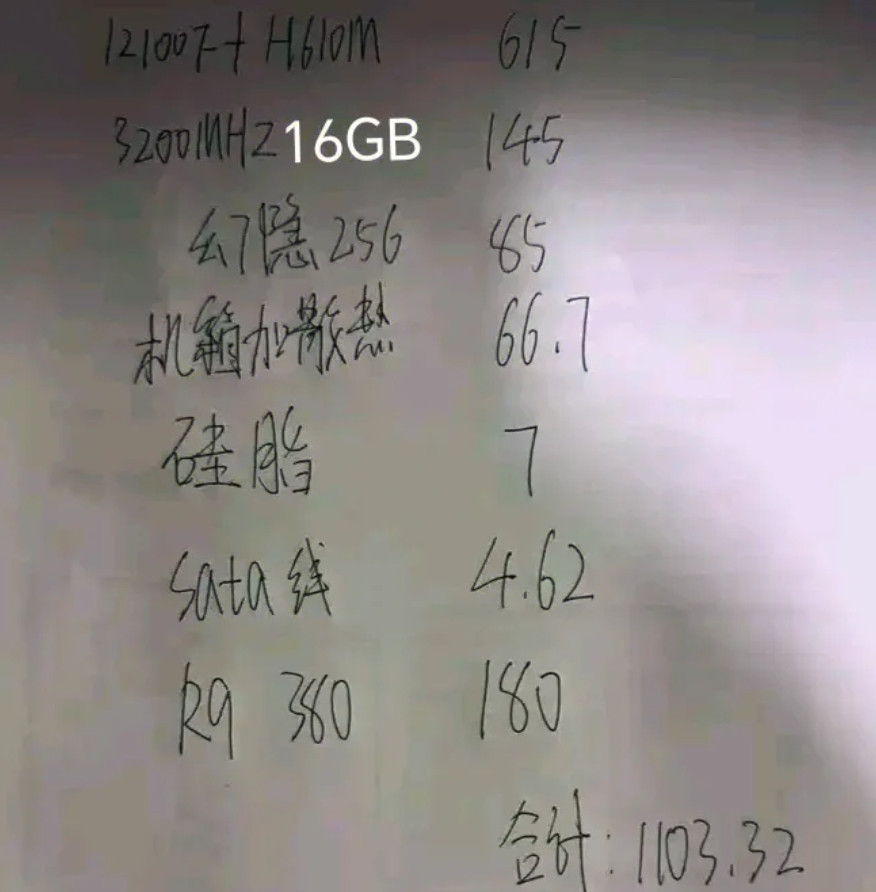 12100F+H610M 615
3200MHZ16GB 145
幻隐256 85
机箱加散热 66.7
硅脂 7
Sata线 4.62
R9 380 180
合计:1103.32